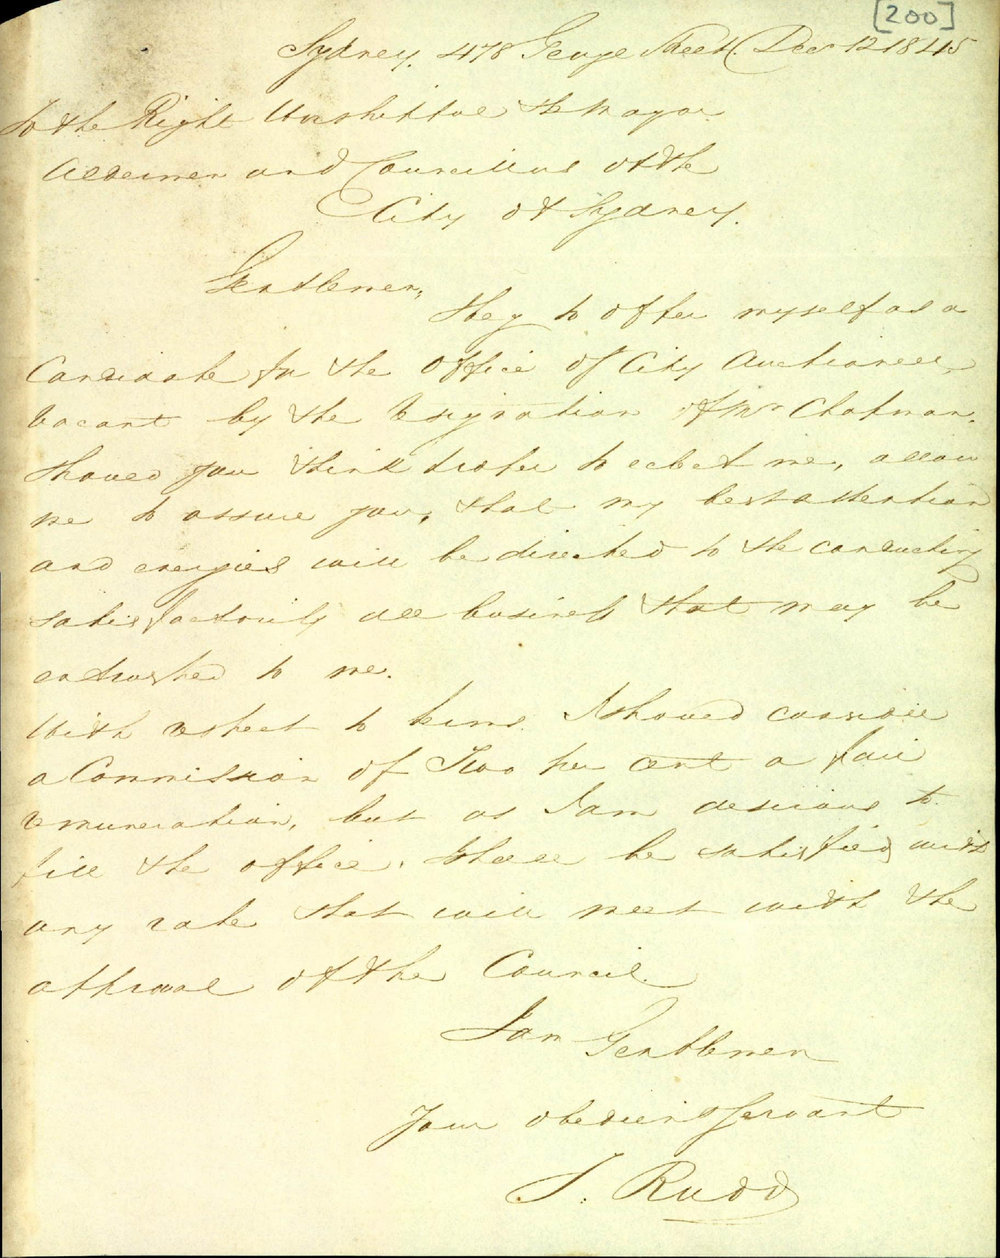 [200]
Sydney, 478 George Street. Decr 12 1845
To the Right Worshipful the Mayor
Aldermen and Councillors of the
City of Sydney.
Gentlemen,
I beg to offer myself as a
Candidate for the Office of City Auctioneer,
Vacant by the resignation of Mr Chapman.
Should you think proper to elect me, allow
me to assure you, that my best attention
and energies will be directed to the conducting
satisfactorily all business that may be
entrusted to me.
With respect to terms I should consider
a Commission of Two per cent a fair
remuneration, but as I am desirous to
fill the office, I shall be satisfied with
any rate that will meet with the
approval of the Council.
I am Gentlemen
Your obedient Servant
J. Rudd